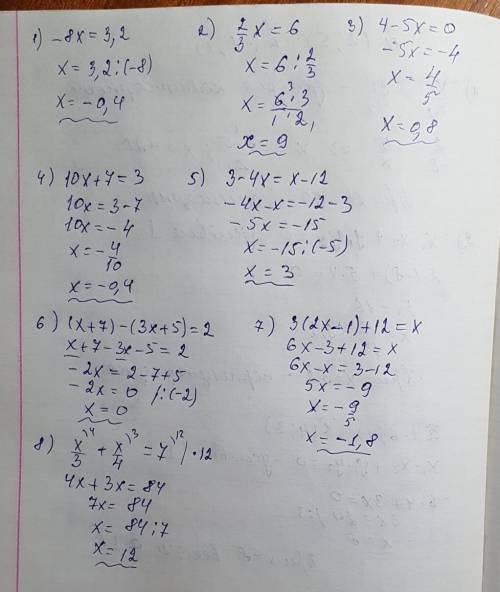 1) -8x = 3,2
x = 3,2 : (-8)
x = -0,4
2) 2/3 x = 6
x = 6 : 2/3
x = 6³·3 / 1·2₁
x = 9
3) 4 - 5x = 0
-5x = -4
x = 4/5
x = 0,8
4) 10x + 7 = 3
10x = 3 - 7
10x = -4
x = -4/10
x = -0,4
5) 3 - 4x = x - 12
-4x - x = -12 - 3
-5x = -15
x = -15 : (-5)
x = 3
6) (x + 7) - (3x + 5) = 2
x + 7 - 3x - 5 = 2
-2x = 2 - 7 + 5
-2x = 0 /:(-2)
x = 0
7) 3(2x - 1) + 12 = x
6x - 3 + 12 = x
6x - x = 3 - 12
5x = -9
x = -9/5
x = -1,8
8) x/3 ⁾⁴ + x/4 ⁾³ = 7 ⁾¹² | · 12
4x + 3x = 84
7x = 84
x = 84 : 7
x = 12